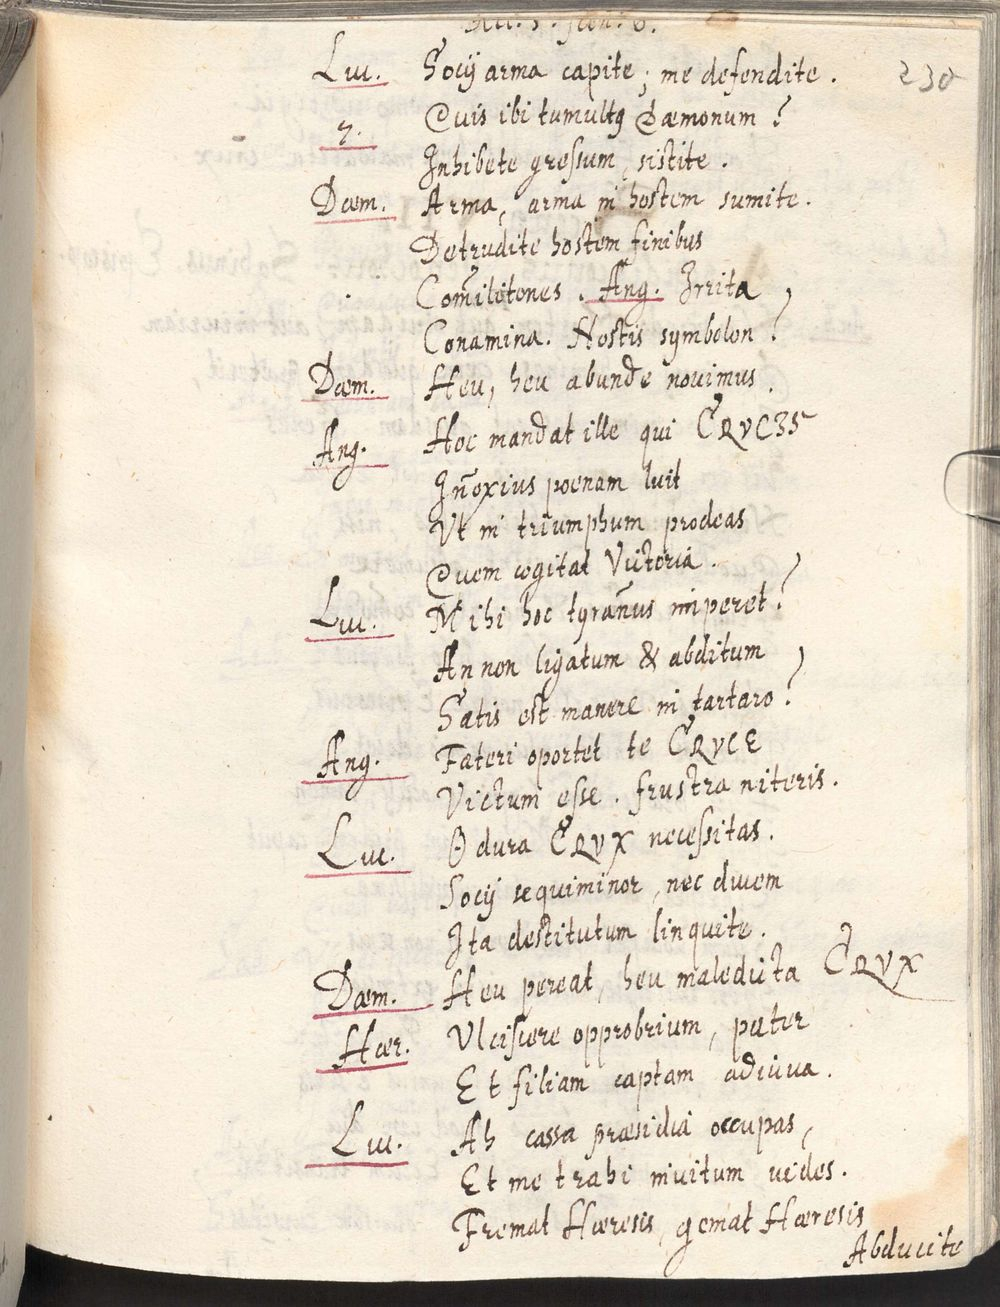 Act. 5. scen. 6.
230
Luc. Socij arma capite; me defendite.
7. Quis ibi tumultꝯ Dæmonum?
Inhibete gressum, sistite.
Dæm. Arma, arma in hostem sumite.
Detrudite hostem finibus
Com̃ilitones. Ang. Irrita
Conamina. Hostis symbolon?
Dæm. Heu, heu abunde novimus.
Ang. Hoc mandat ille qui CRVCIS
Iñoxius poenam luit
Vt in triumphum prodeas
Quem cogitat Victoria.
Luc. Mihi hoc tyrañus imperet?
An non ligatum & abditum
Satis est manere in tartaro?
Ang. Fateri oportet te CRVCE
Victum esse. frustra niteris.
Luc. O dura CRVX necessitas.
Socij sequiminor, nec ducem
Ita destitutum linquite.
Dæm. Heu pereat, heu maledicta CRVX
Hær. Ulciscere opprobrium, pater
Et filiam captam adiuva.
Luc. Ah cassa præsidia occupas,
Et me trahi invitum vides.
Fremat Hæresis, gemat Hæresis
Abducite